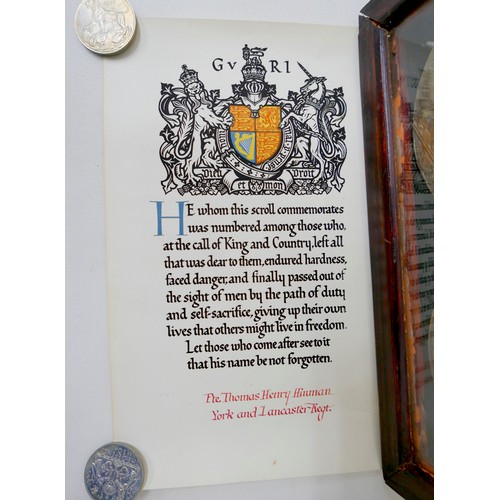 GVRI
Dieu et mon droit
HE whom this scroll commemorates
was numbered among those who,
at the call of King and Country, left all
that was dear to them, endured hardness,
faced danger, and finally passed out of
the sight of men by the path of duty
and self-sacrifice, giving up their own
lives that others might live in freedom.
Let those who come after see to it
that his name be not forgotten.
Pte. Thomas Henry Hinman
York and Lancaster Regt.